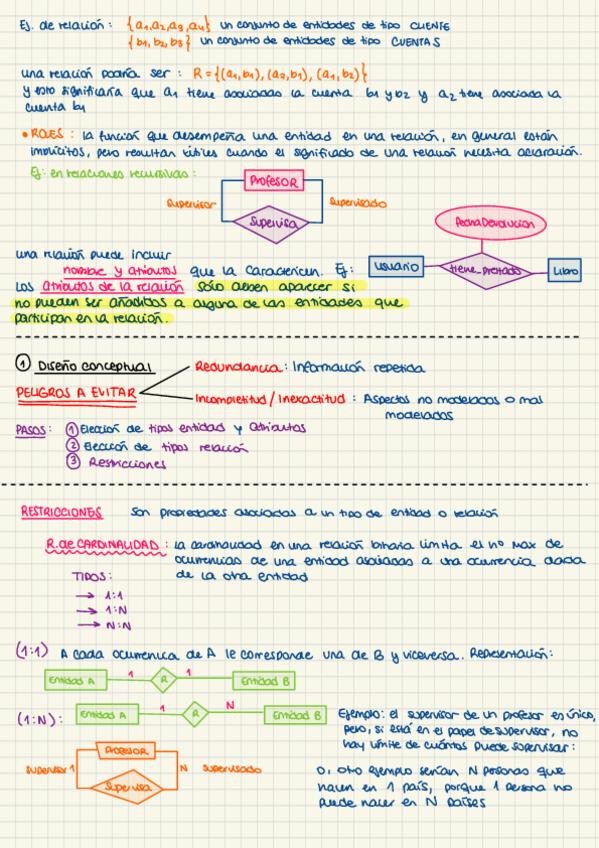 Ej. de relación: {a₁,a₂,a₃,a₄} un conjunto de entidades de tipo CLIENTE
{b₁,b₂,b₃} un conjunto de entidades de tipo CUENTAS
una relación podría ser: R={(a₁,b₁),(a₂,b₁),(a₁,b₂)}
y esto significaría que a₁ tiene asociadas la cuenta b₁ y b₂ y a₂ tiene asociada la
cuenta b₁
• ROLES: la función que desempeña una entidad en una relación, en general están
implícitos, pero resultan útiles cuando el significado de una relación necesita aclaración.
Ej: en relaciones recursivas:
Profesor
Supervisor
Supervisado
Supervisa
FechaDevolucion
Usuario
tiene_prestado
Libro
una relación puede incluir
nombre y atributos que la caractericen. Ej:
Los atributos de la relación sólo deben aparecer si
no pueden ser añadidos a alguna de las entidades que
participan en la relación.
① Diseño conceptual
PELIGROS A EVITAR
Redundancia: Información repetida
Incompletitud/Inexactitud: Aspectos no modelados o mal
modelados
PASOS: ① Elección de tipos entidad y atributos
② Elección de tipos relación
③ Restricciones
RESTRICCIONES son propiedades asociadas a un tipo de entidad o relación
R.de CARDINALIDAD: la cardinalidad en una relación binaria limita el nº max de
ocurrencias de una entidad asociadas a una ocurrencia dada
de la otra entidad
TIPOS:
→ 1:1
→ 1:N
→ N:N
(1:1) A cada ocurrencia de A le corresponde una de B y viceversa. Representación:
Entidad A 1 R 1 Entidad B
(1:N): Entidad A 1 R N Entidad B
Ejemplo: el supervisor de un profesor en único,
pero, si está en el papel de supervisor, no
hay límite de cuántos puede supervisar:
Profesor
supervisor 1
N supervisado
Supervisa
O, otro ejemplo serían N personas que
nacen en 1 país, porque 1 persona no
puede nacer en N países